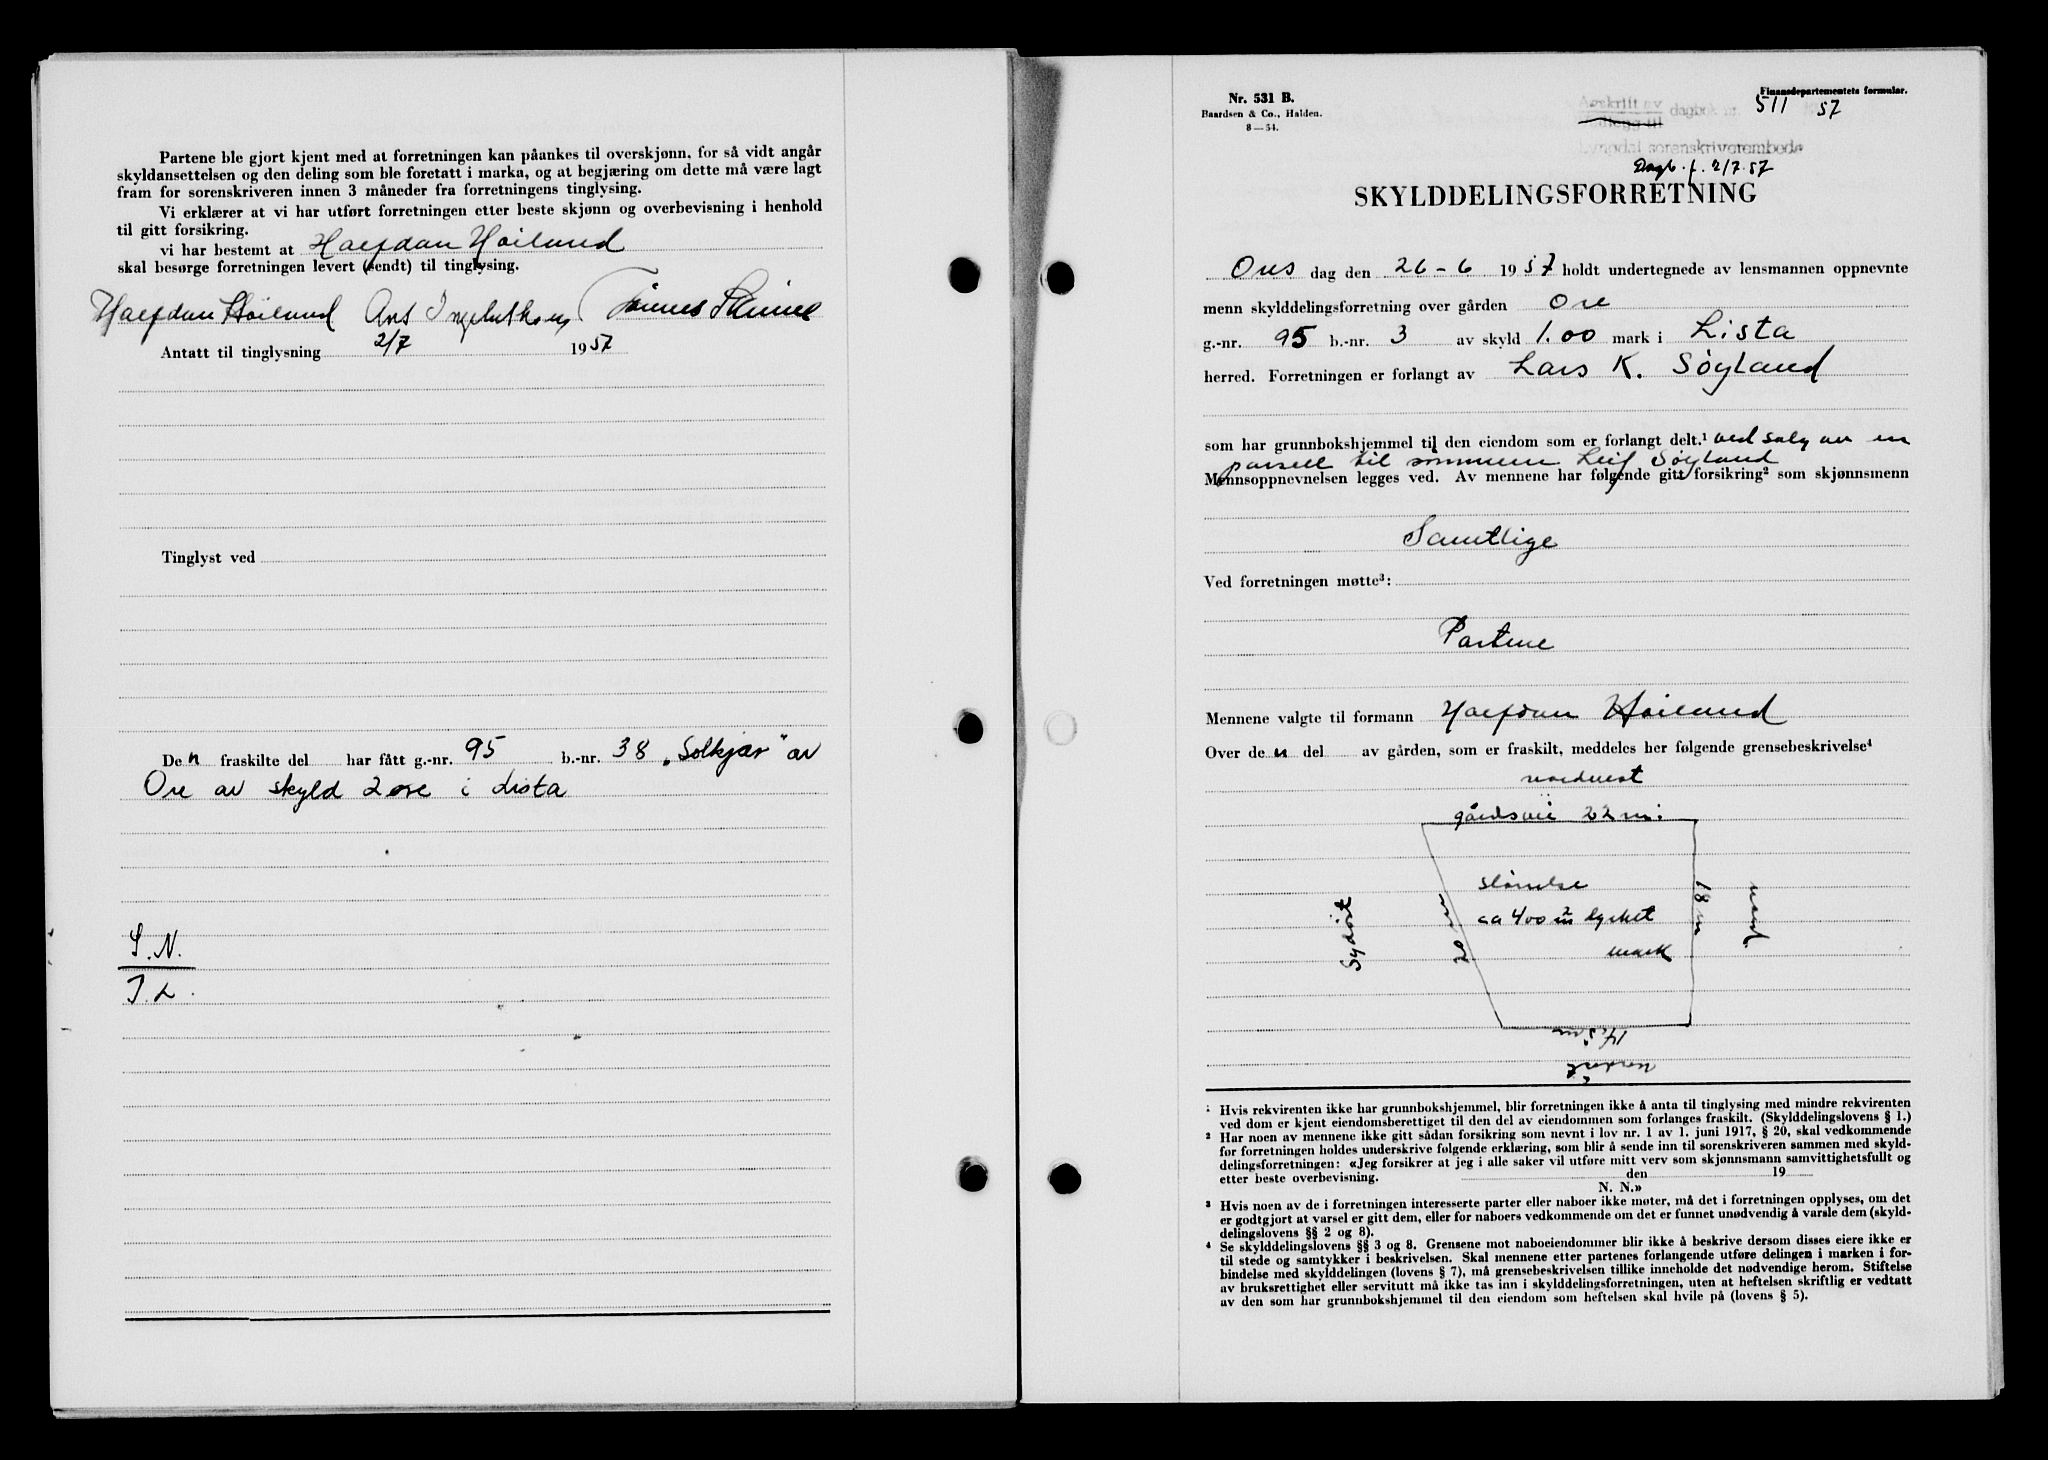 Partene ble gjort kjent med at forretningen kan påankes til overskjønn, for så vidt angår
skyldansettelsen og den deling som ble foretatt i marka, og at begjæring om dette må være lagt
fram for sorenskriveren innen 3 måneder fra forretningens tinglysing.
Vi erklærer at vi har utført forretningen etter beste skjønn og overbevisning i henhold
til gitt forsikring.
vi har bestemt at Halfdan Høilund
skal besørge forretningen levert (sendt) til tinglysing.
Halfdan Høilund
Antatt til tinglysning 2/7 1957
Tinglyst ved
Den fraskilte del har fått g.-nr. 95 b.-nr. 38 „Solkjær" av
Ore av skyld 2 øre i Lista
S. N.
J. L.
Nr. 531 B.
Baardsen & Co., Halden.
8—54.
Finansdepartementets formular.
Avskrift av dagbok nr. 511 57
Vedlegg til
Lyngdal sorenskriverembede
Dagb. f. 2/7.57
SKYLDDELINGSFORRETNING
Ons dag den 26-6 1957 holdt undertegnede av lensmannen oppnevnte
menn skylddelingsforretning over gården Ore
g.-nr. 95 b.-nr. 3 av skyld 1.00 mark i Lista
herred. Forretningen er forlangt av Lars K. Søyland
som har grunnbokshjemmel til den eiendom som er forlangt delt.¹ ved salg av en
parsell til sønnen Leif Søyland
Mennsoppnevnelsen legges ved. Av mennene har følgende gitt forsikring² som skjønnsmenn
Samtlige
Ved forretningen møtte³:
Partene
Mennene valgte til formann Halfdan Høilund
Over den del av gården, som er fraskilt, meddeles her følgende grensebeskrivelse⁴
nordvest
gårdsvei 22 m.
størrelse
ca 400 m² dyrket
mark
Sydøst
20 m
18 m
¹ Hvis rekvirenten ikke har grunnbokshjemmel, blir forretningen ikke å anta til tinglysing med mindre rekvirenten
ved dom er kjent eiendomsberettiget til den del av eiendommen som forlanges fraskilt. (Skylddelingslovens § 1.)
² Har noen av mennene ikke gitt sådan forsikring som nevnt i lov nr. 1 av 1. juni 1917, § 20, skal vedkommende
før forretningen holdes underskrive følgende erklæring, som blir å sende inn til sorenskriveren sammen med skyld-
delingsforretningen: «Jeg forsikrer at jeg i alle saker vil utføre mitt verv som skjønnsmann samvittighetsfullt og
etter beste overbevisning. den 19
N. N.»
³ Hvis noen av de i forretningen interesserte parter eller naboer ikke møter, må det i forretningen opplyses, om det
er godtgjort at varsel er gitt dem, eller for naboers vedkommende om det er funnet unødvendig å varsle dem (skyld-
delingslovens §§ 2 og 8).
⁴ Se skylddelingslovens §§ 3 og 8. Grensene mot naboeiendommer blir ikke å beskrive dersom disses eiere ikke er
til stede og samtykker i beskrivelsen. Skal mennene etter partenes forlangende utføre delingen i marken i for-
bindelse med skylddelingen (lovens § 7), må grensebeskrivelsen tillike inneholde det nødvendige herom. Stiftelse
av bruksrettighet eller servitutt må ikke tas inn i skylddelingsforretningen, uten at heftelsen skriftlig er vedtatt
av den som har grunnbokshjemmel til den eiendom som heftelsen skal hvile på (lovens § 5).